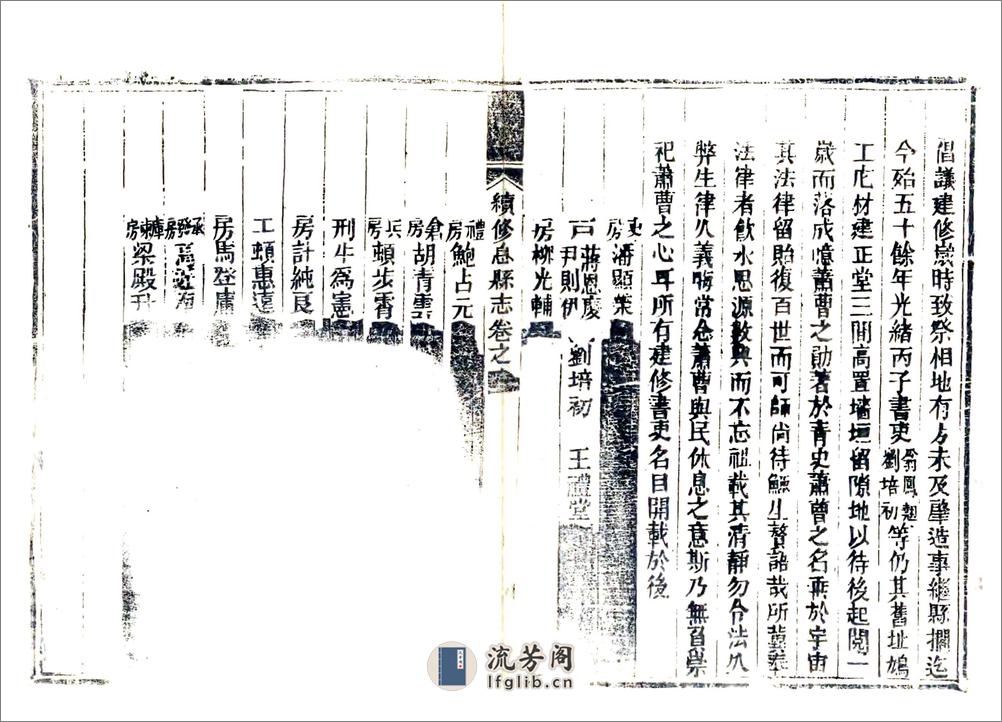 倡議建修崇時致祭相地有方未及肇造事繼縣擱迄
今殆五十餘年光緒丙子書吏翁鳳翹劉培初等仍其舊址鳩
工庀材建正堂三間高置墻垣留隙地以待後起閱一
歲而落成憶蕭曹之勛著於青史蕭曹之名垂於宇宙
其法律留貽復百世而可師尚待鯫生贅語哉所冀奉
法律者飲水思源數典而不忘祖載其清靜勿令法久
弊生律久義晦常念蕭曹與民休息之意斯乃無負崇
祀蕭曹之心耳所有建修書吏名目開載於後
吏房潘顯榮
戶蔣恩慶尹則伊 劉培初 王禮堂
房柳光輔
續修息縣志卷之
禮房鮑占元
倉房胡青雲
兵房頓步霄
刑牛為憲
房計純良
工頓惠遠
房馬登庸
承發房
庫柬房梁殿升
流芳阁
lfglib.cn